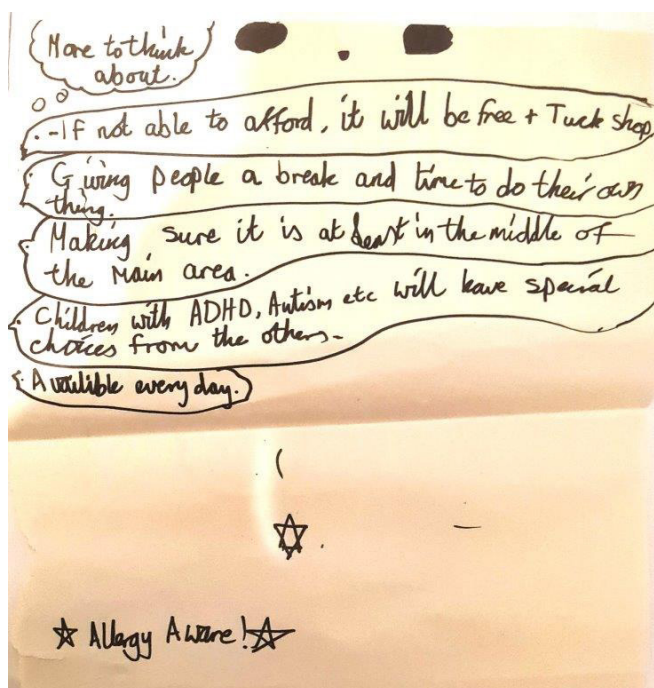 More to think
about.
.-If not able to afford, it will be free + Tuck shop
. Giving people a break and time to do their own
thing.
. Making sure it is at least in the middle of
the main area.
. Children with ADHD, Autism etc will have special
choices from the others.
. Availible every day.
Allergy Aware!